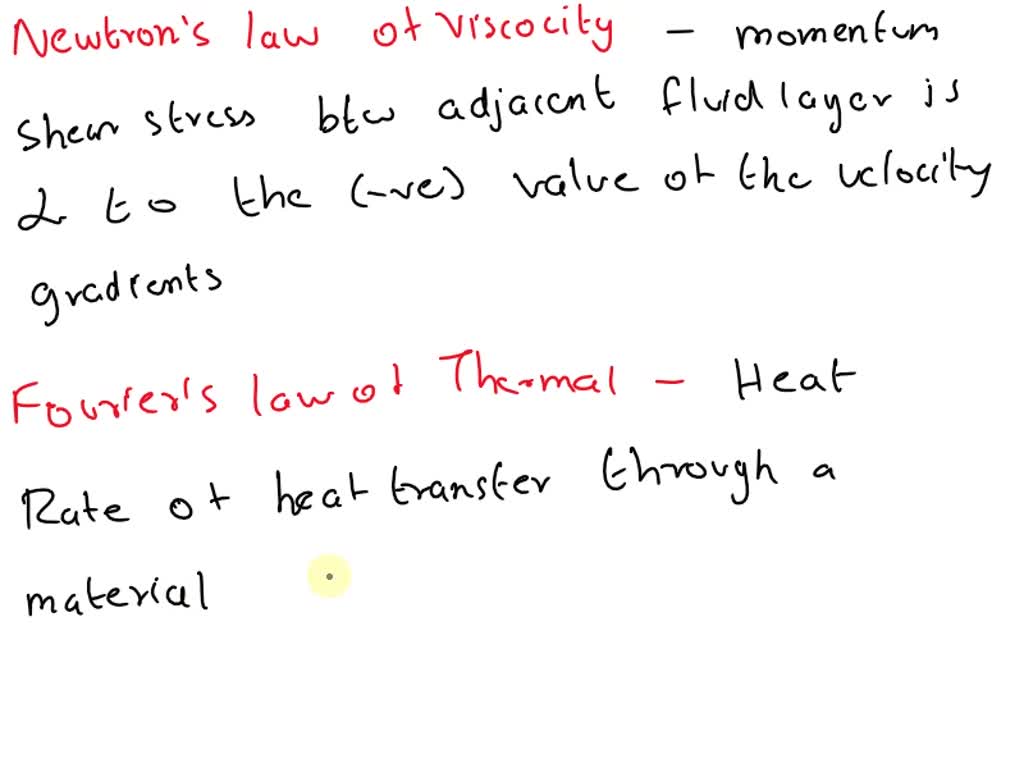 Newtron's law of Viscocity - momentum
Shear stress btw adjacent fluid layer is
α to the (-ve) value of the velocity
gradients
Fourier's law of Thermal - Heat
Rate of heat transfer through a
material